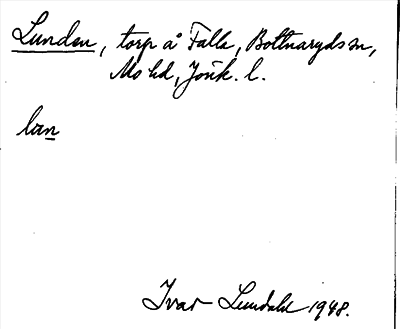 Lunden, torp å Falla, Bottnaryds sn,
Mo hd, Jönk. l.
lơn
Ivar Lundahl 1948.